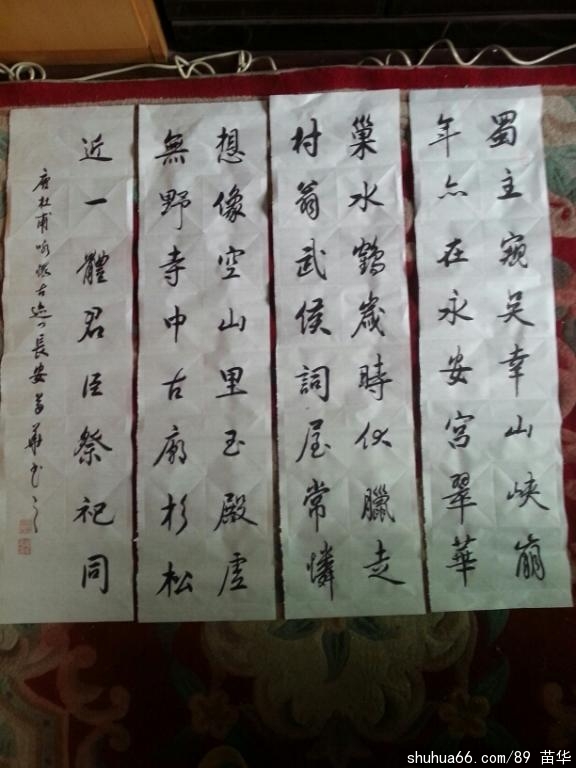 蜀主窺吳幸山峽崩
年亦在永安宮翠華
想像空山里玉殿虛
無野寺中古廟杉松
巢水鶴歲時伏臘走
村翁武侯詞屋常憐
近一體君臣祭祀同
唐杜甫咏懷古迹 長安苗華书之
shuhua66.com/89 苗华